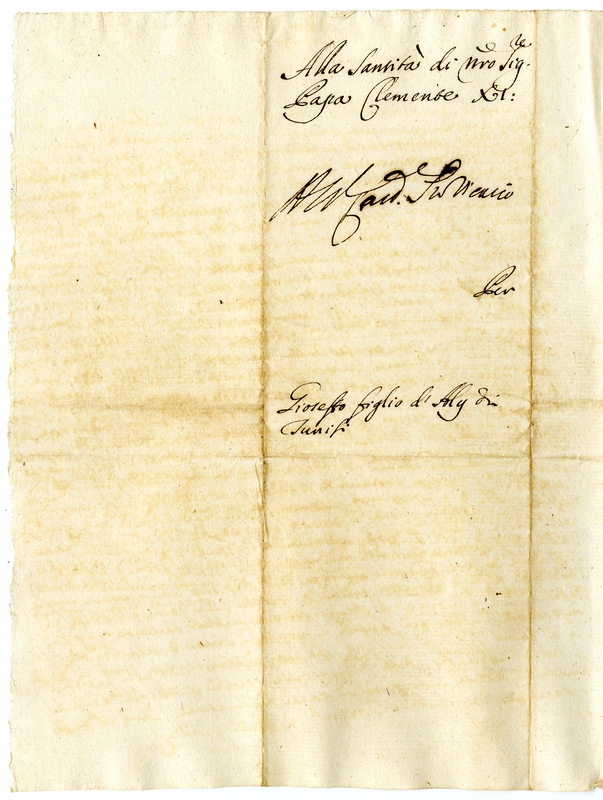 Alla Santità di Nro Sig.re
Papa Clemente XI:
Al Card. Vicario
Per
Gioseffo figlio di Aly di
Tunisi